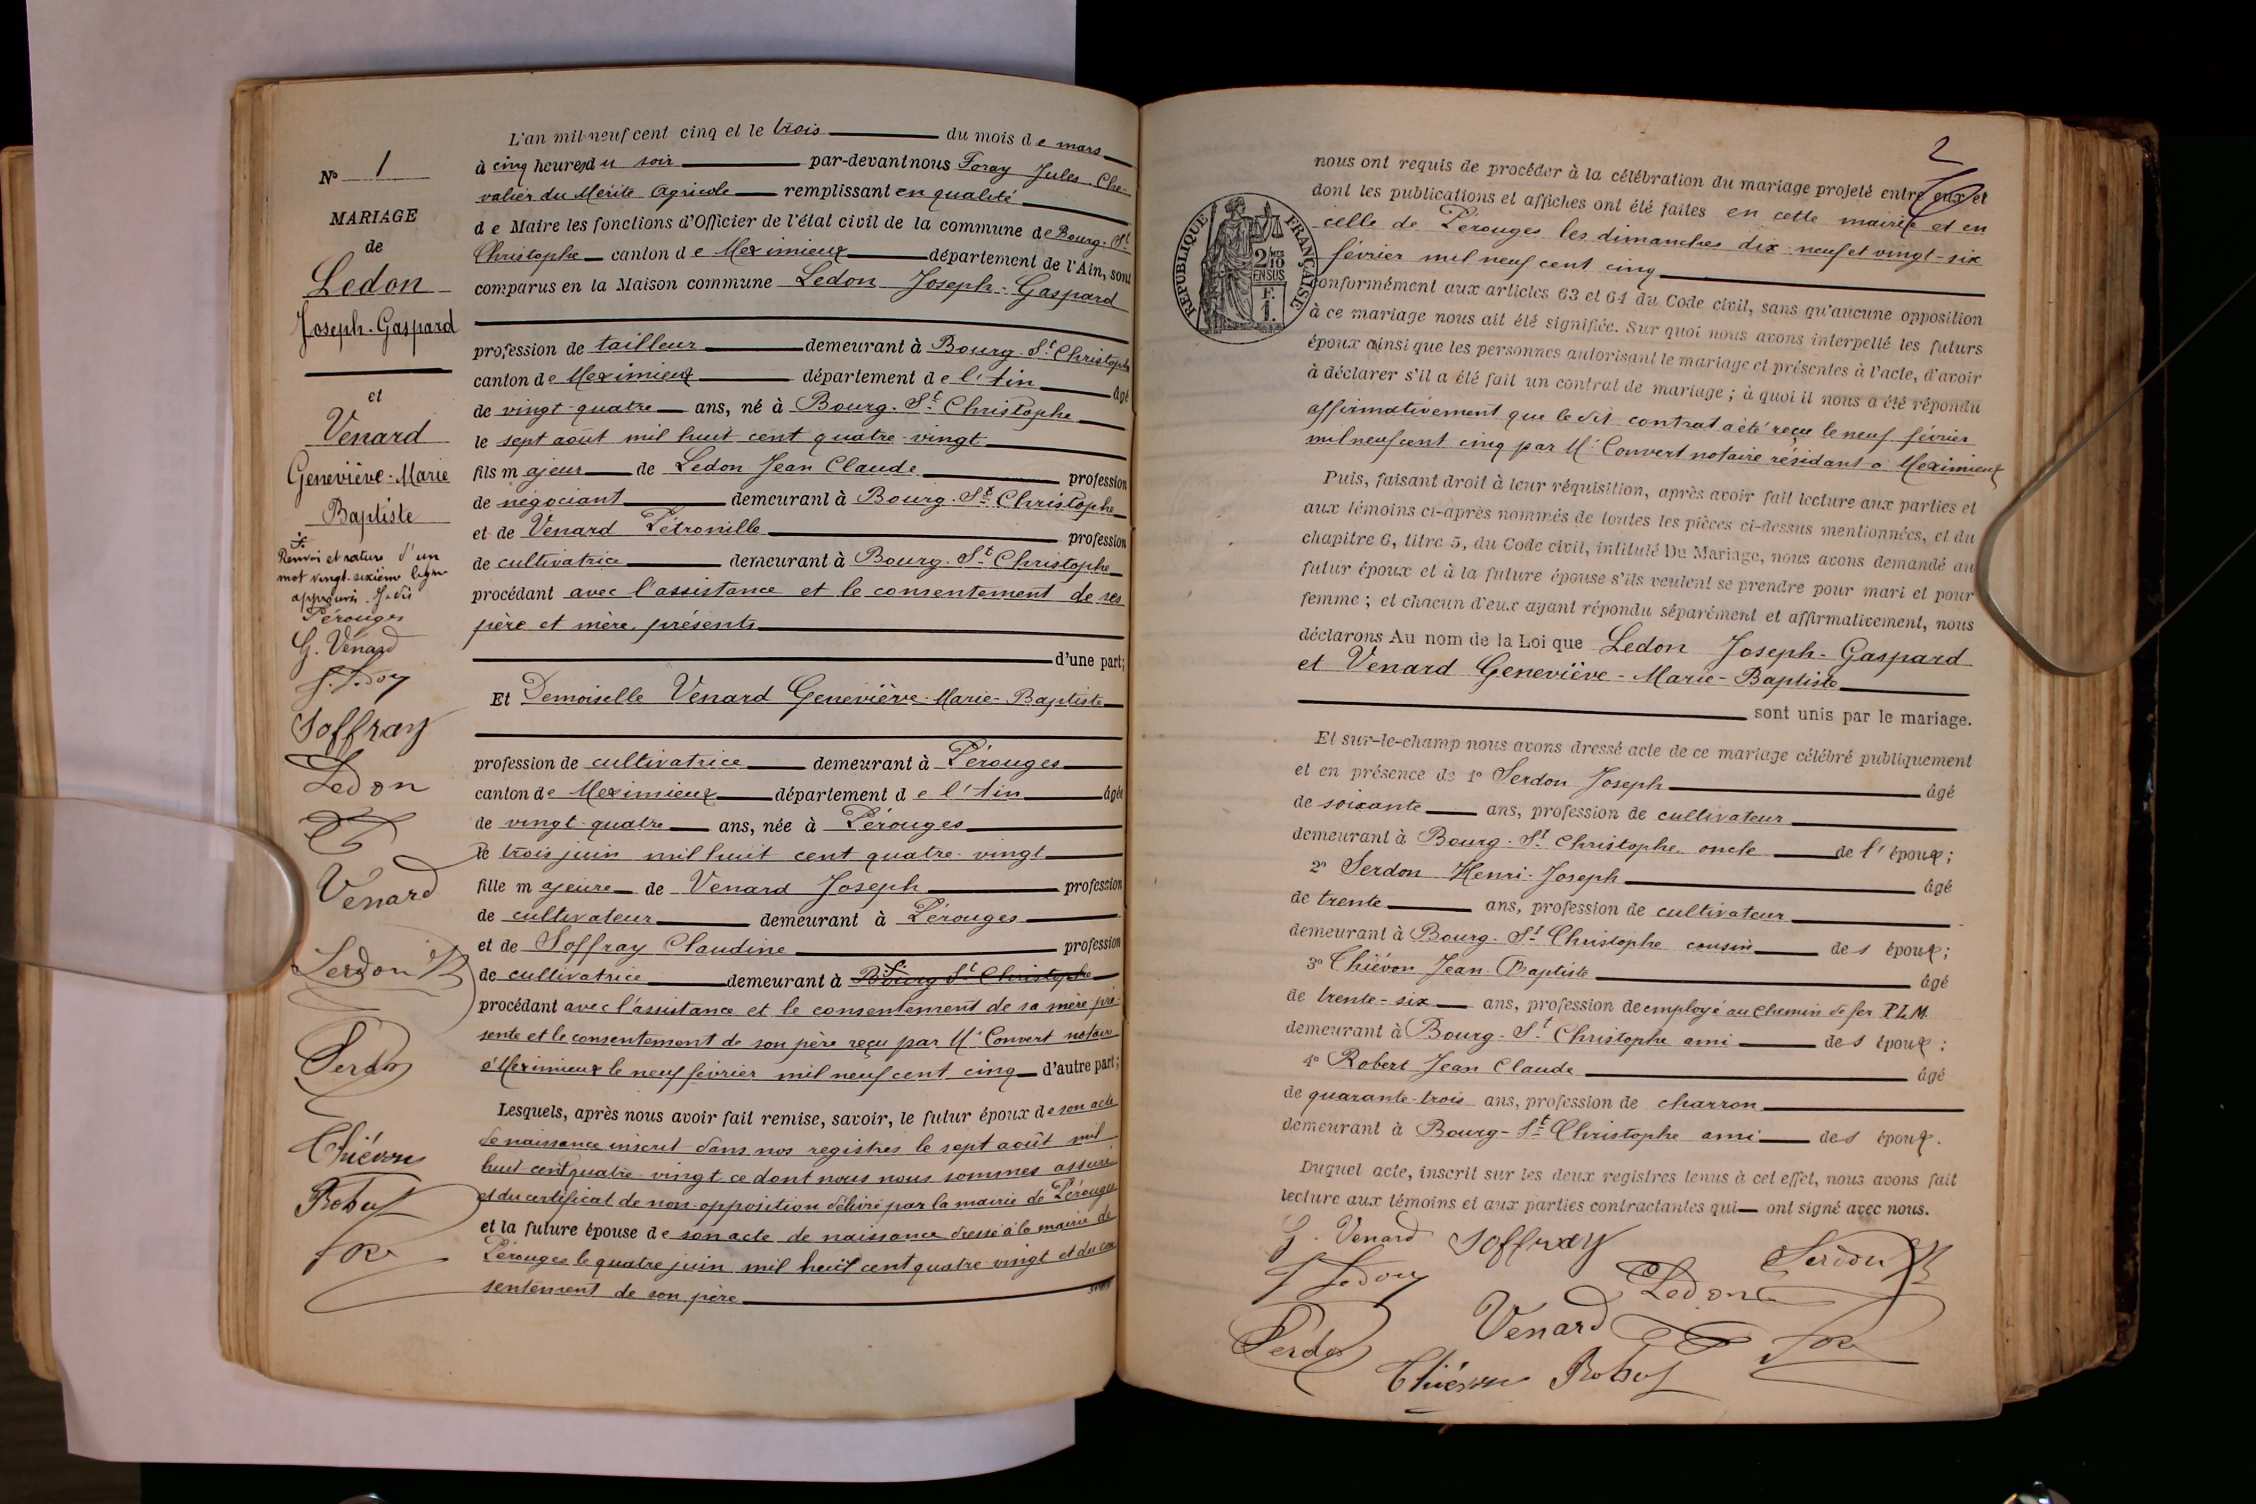 N° 1
MARIAGE
de
Ledon
Joseph-Gaspard
et
Venard
Geneviève-Marie
Baptiste
Renvoi et rature d'un
mot vingt-sixième ligne
approuvés
Pérouges
G. Venard
J. Ledon
Soffray
Ledon
Venard
Serdon
Serdon
Thiévon
Robert
L'an mil neuf cent cinq et le trois du mois de mars
à cinq heures du soir par-devant nous Foray Jules Che-
valier du Mérite Agricole remplissant en qualité
de Maire les fonctions d'Officier de l'état civil de la commune de Bourg-St
Christophe canton de Meximieux département de l'Ain, sont
comparus en la Maison commune Ledon Joseph-Gaspard
profession de tailleur demeurant à Bourg-St Christophe
canton de Meximieux département de l'Ain âgé
de vingt-quatre ans, né à Bourg-St Christophe
le sept août mil huit cent quatre-vingt
fils majeur de Ledon Jean Claude profession
de négociant demeurant à Bourg-St Christophe
et de Venard Pétronille profession
de cultivatrice demeurant à Bourg-St Christophe
procédant avec l'assistance et le consentement de ses
père et mère présents
d'une part;
Et Demoiselle Venard Geneviève-Marie-Baptiste
profession de cultivatrice demeurant à Pérouges
canton de Meximieux département de l'Ain âgée
de vingt-quatre ans, née à Pérouges
le trois juin mil huit cent quatre-vingt
fille majeure de Venard Joseph profession
de cultivateur demeurant à Pérouges
et de Soffray Claudine profession
de cultivatrice demeurant à Bourg St Christophe
procédant avec l'assistance et le consentement de sa mère pré-
sente et le consentement de son père reçu par Me Convert notaire
à Meximieux le neuf février mil neuf cent cinq d'autre part;
Lesquels, après nous avoir fait remise, savoir, le futur époux de son acte
de naissance inscrit dans nos registres le sept août mil
huit cent quatre-vingt ce dont nous nous sommes assuré
et du certificat de non-opposition délivré par la mairie de Pérouges
et la future épouse de son acte de naissance dressé à la mairie de
Pérouges le quatre juin mil huit cent quatre vingt et du con
sentement de son père
2
nous ont requis de procéder à la célébration du mariage projeté entre eux et
dont les publications et affiches ont été faites en cette mairie et en
celle de Pérouges les dimanches dix-neuf et vingt-six
février mil neuf cent cinq
conformément aux articles 63 et 64 du Code civil, sans qu'aucune opposition
à ce mariage nous ait été signifiée. Sur quoi nous avons interpellé les futurs
époux ainsi que les personnes autorisant le mariage et présentes à l'acte, d'avoir
à déclarer s'il a été fait un contrat de mariage; à quoi il nous a été répondu
affirmativement que le dit contrat a été reçu le neuf février
mil neuf cent cinq par Me Convert notaire résidant à Meximieux
Puis, faisant droit à leur réquisition, après avoir fait lecture aux parties et
aux témoins ci-après nommés de toutes les pièces ci-dessus mentionnées, et du
chapitre 6, titre 5, du Code civil, intitulé Du Mariage, nous avons demandé au
futur époux et à la future épouse s'ils veulent se prendre pour mari et pour
femme; et chacun d'eux ayant répondu séparément et affirmativement, nous
déclarons Au nom de la Loi que Ledon Joseph-Gaspard
et Venard Geneviève-Marie-Baptiste
sont unis par le mariage.
Et sur-le-champ nous avons dressé acte de ce mariage célébré publiquement
et en présence de 1° Serdon Joseph âgé
de soixante ans, profession de cultivateur
demeurant à Bourg-St Christophe oncle de l'époux;
2° Serdon Henri-Joseph âgé
de trente ans, profession de cultivateur
demeurant à Bourg-St Christophe cousin des époux;
3° Thiévon Jean-Baptiste âgé
de trente-six ans, profession de employé au Chemin de fer P.L.M.
demeurant à Bourg-St Christophe ami des époux;
4° Robert Jean Claude âgé
de quarante-trois ans, profession de charron
demeurant à Bourg-St Christophe ami des époux.
Duquel acte, inscrit sur les deux registres tenus à cet effet, nous avons fait
lecture aux témoins et aux parties contractantes qui ont signé avec nous.
G. Venard Soffray Serdon
J Ledon Ledon
Serdon Venard
Thiévon Robert
RÉPUBLIQUE FRANÇAISE
2 MES
10
EN SUS
F.
1.